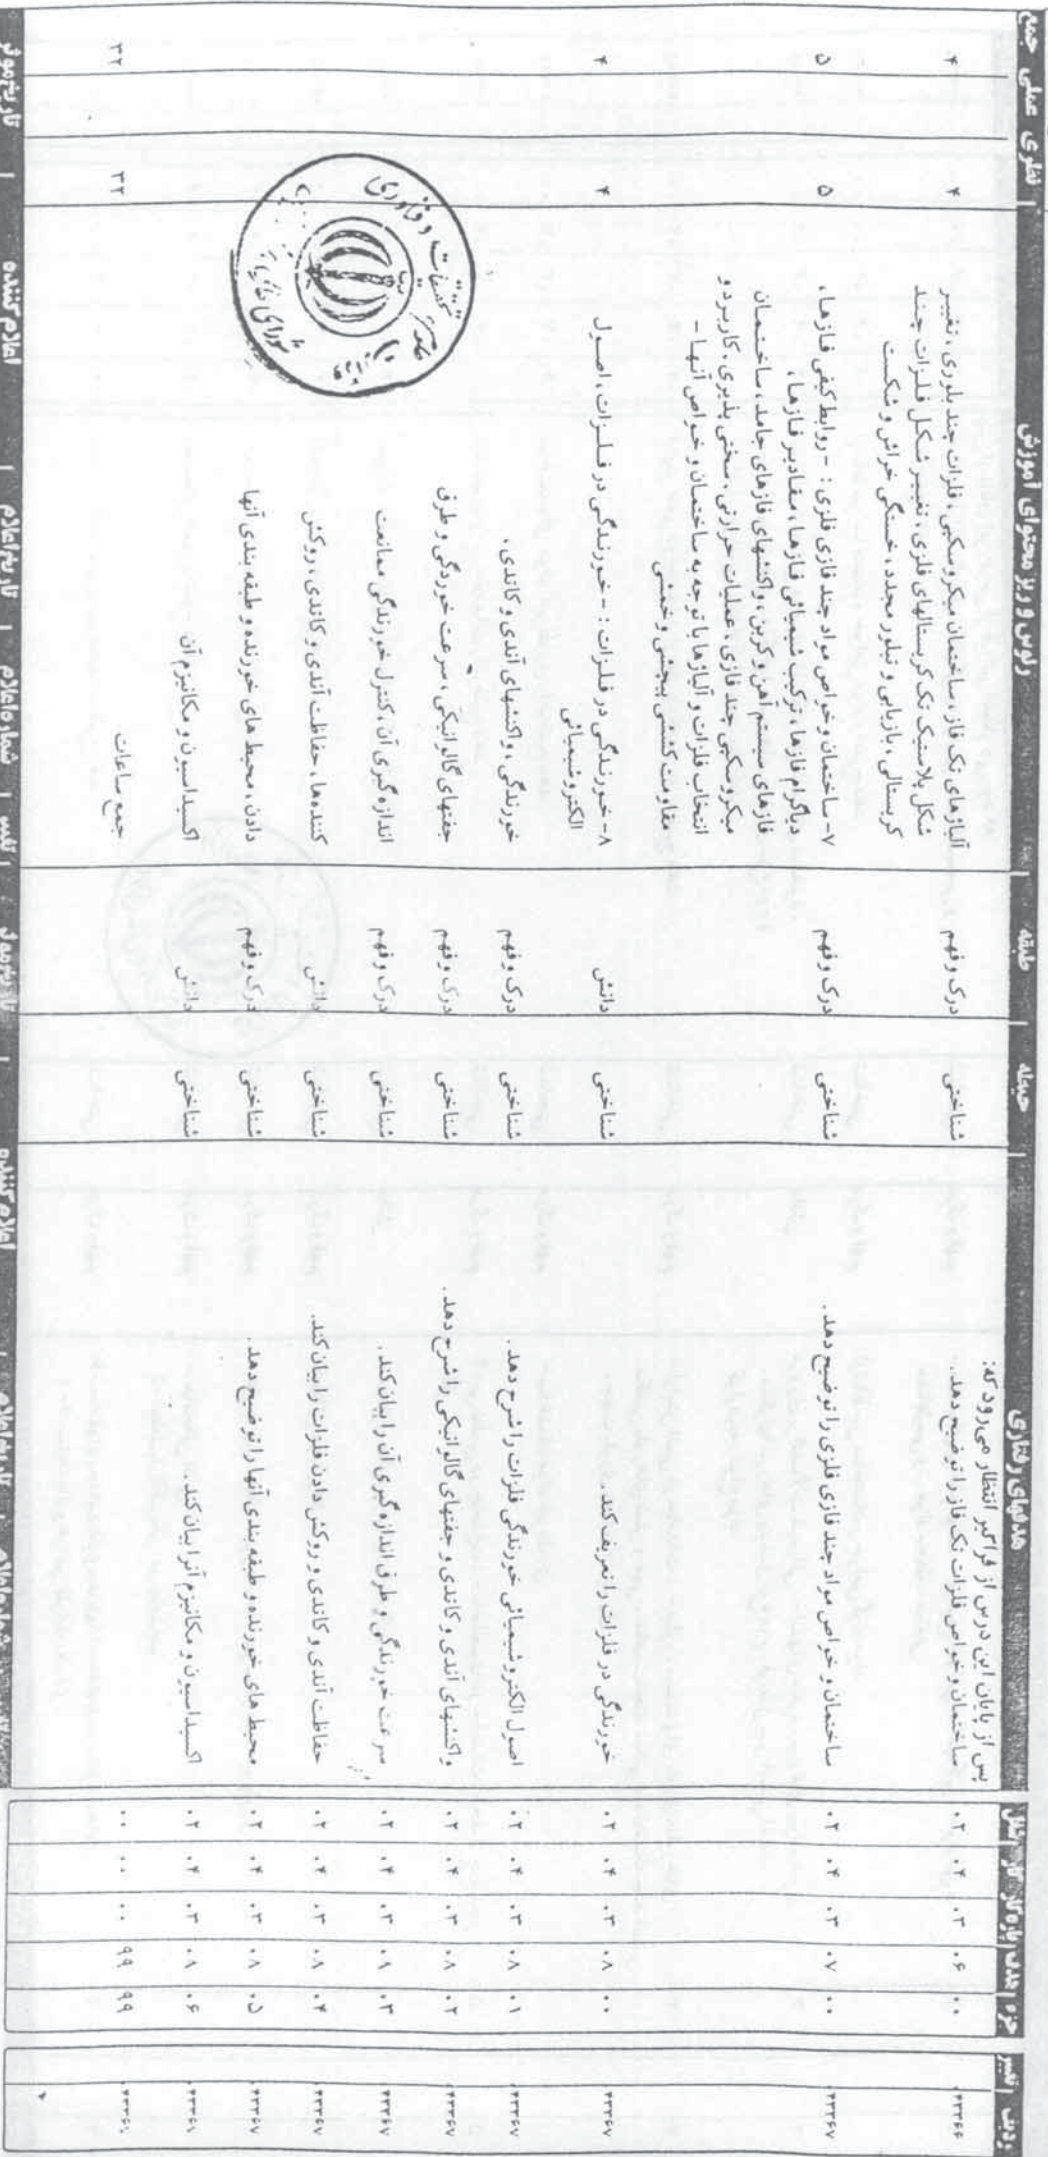 ردیف تغییر جزء هدف پاره کار کار شغل هدفهای رفتاری حیطه طبقه رئوس و ریز محتوای آموزش نظری عملی جمع
پس از پایان این درس از فراگیر انتظار می‌رود که:
۰۰ ۰۶ ۰۳ ۰۴ ۰۲ ساختمان و خواص فلزات تک فاز را توضیح دهد. شناختی درک و فهم آلیاژهای تک فاز، ساختمان میکروسکپی، فلزات چند بلوری، تغییر ۴ ۴
شکل پلاستیک تک کریستالهای فلزی، تغییر شکل فلزات چند
کریستالی، بازیابی و تبلور مجدد، خستگی خراش و شکست
۰۰ ۰۷ ۰۳ ۰۴ ۰۲ ساختمان و خواص مواد چند فازی فلزی را توضیح دهد. شناختی درک و فهم ۷- ساختمان و خواص مواد چند فازی فلزی : - روابط کیفی فازها، ۵ ۵
دیاگرام فازها، ترکیب شیمیائی فازها، مقادیر فازها،
فازهای سیستم آهن و کربن، واکنشهای فازهای جامد، ساختمان
میکروسکپی چند فازی، عملیات حرارتی، سختی پذیری، کاربرد و
انتخاب فلزات و آلیاژها با توجه به ساختمان و خواص آنها -
مقاومت کششی پیچشی و خمشی
۰۰ ۰۸ ۰۳ ۰۴ ۰۲ خورندگی در فلزات را تعریف کند. شناختی دانش ۸- خورندگی در فلزات : - خورندگی در فلزات، اصول ۴ ۴
الکتروشیمیائی
۰۱ ۰۸ ۰۳ ۰۴ ۰۲ اصول الکتروشیمیائی خورندگی فلزات را شرح دهد. شناختی درک و فهم خورندگی، واکنشهای آندی و کاتدی،
۰۲ ۰۸ ۰۳ ۰۴ ۰۲ واکنشهای آندی و کاتدی و جفتهای گالوانیکی را شرح دهد. شناختی درک و فهم جفتهای گالوانیکی، سرعت خوردگی و طرق
۰۳ ۰۸ ۰۳ ۰۴ ۰۲ سرعت خورندگی و طرق اندازه گیری آن را بیان کند. شناختی درک و فهم اندازه گیری آن، کنترل خورندگی ممانعت
۰۴ ۰۸ ۰۳ ۰۴ ۰۲ حفاظت آندی و کاتدی و روکش دادن فلزات را بیان کند. شناختی دانش کننده‌ها، حفاظت آندی و کاتدی، روکش
۰۵ ۰۸ ۰۳ ۰۴ ۰۲ محیط های خورنده و طبقه بندی آنها را توضیح دهد. شناختی درک و فهم دادن، محیط های خورنده و طبقه بندی آنها
۰۶ ۰۸ ۰۳ ۰۴ ۰۲ اکسیداسیون و مکانیزم آنرا بیان کند. شناختی دانش اکسیداسیون و مکانیزم آن
۹۹ ۹۹ ۰۰ ۰۰ ۰۰ جمع ساعات ۳۲ ۳۲
اعلام کننده تاریخ موثر نقش شماره اعلام تاریخ اعلام اعلام کننده تاریخ موثر